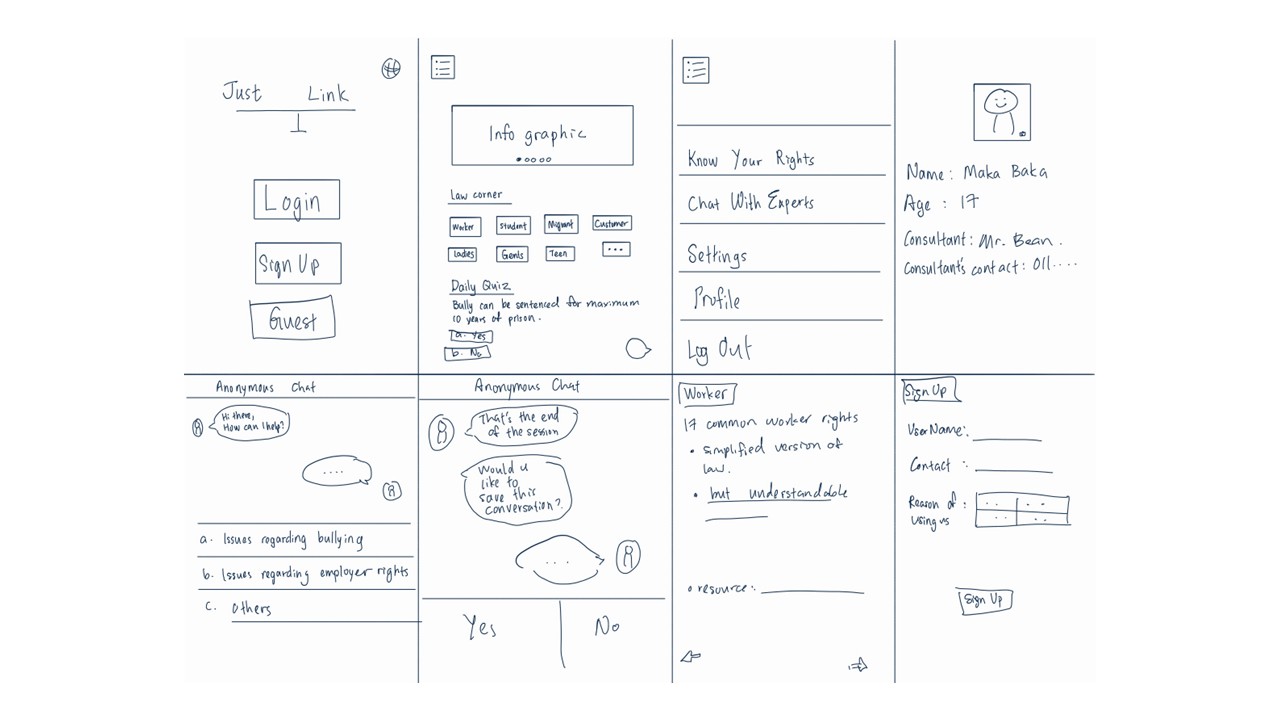 Just Link
Login
Sign Up
Guest
Info graphic
Law corner
Worker Student Migrant Customer
Ladies Gents Teen ...
Daily Quiz
Bully can be sentenced for maximum
10 years of prison.
a. Yes
b. No
Know Your Rights
Chat With Experts
Settings
Profile
Log Out
Name: Maka Baka
Age : 17
Consultant: Mr. Bean.
Consultant's contact: 011....
Anonymous Chat
Hi there,
How can I help?
....
a. Issues regarding bullying
b. Issues regarding employer rights
c. Others
Anonymous Chat
That's the end
of the session
Would u
like to
save this
conversation?
...
Yes No
Worker
17 common worker rights
• simplified version of
law.
• but understandable
resource:
Sign Up
UserName:
Contact :
Reason of :
using us
Sign Up